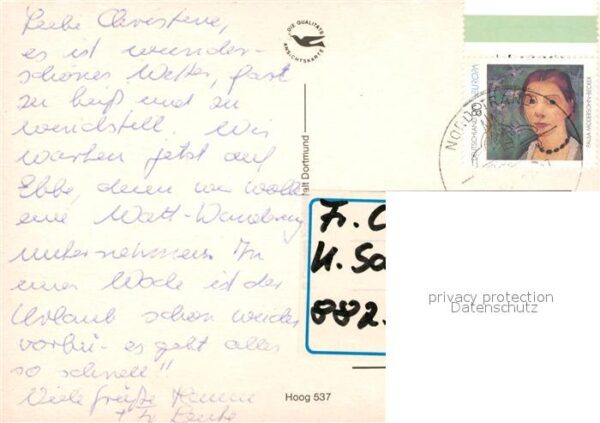 Liebe Christine,
es ist wunder-
schönes Wetter, fast
zu heiß und zu
windstill. Wir
warten jetzt auf
Ebbe, denn wir woll
eine Watt-Wanderung
unternehmen. In
einer Woche ist der
Urlaub schon wieder
vorbei - es geht alles
so schnell"
Viele Grüße
DIE QUALITÄTS
ANSICHTSKARTE
alt Dortmund
Hoog 537
NORDSTRAN
EUROPA
DEUTSCHE
80
PAULA MODERSOHN-BECKER
Fr. C
K. Sa
882.
privacy protection
Datenschutz